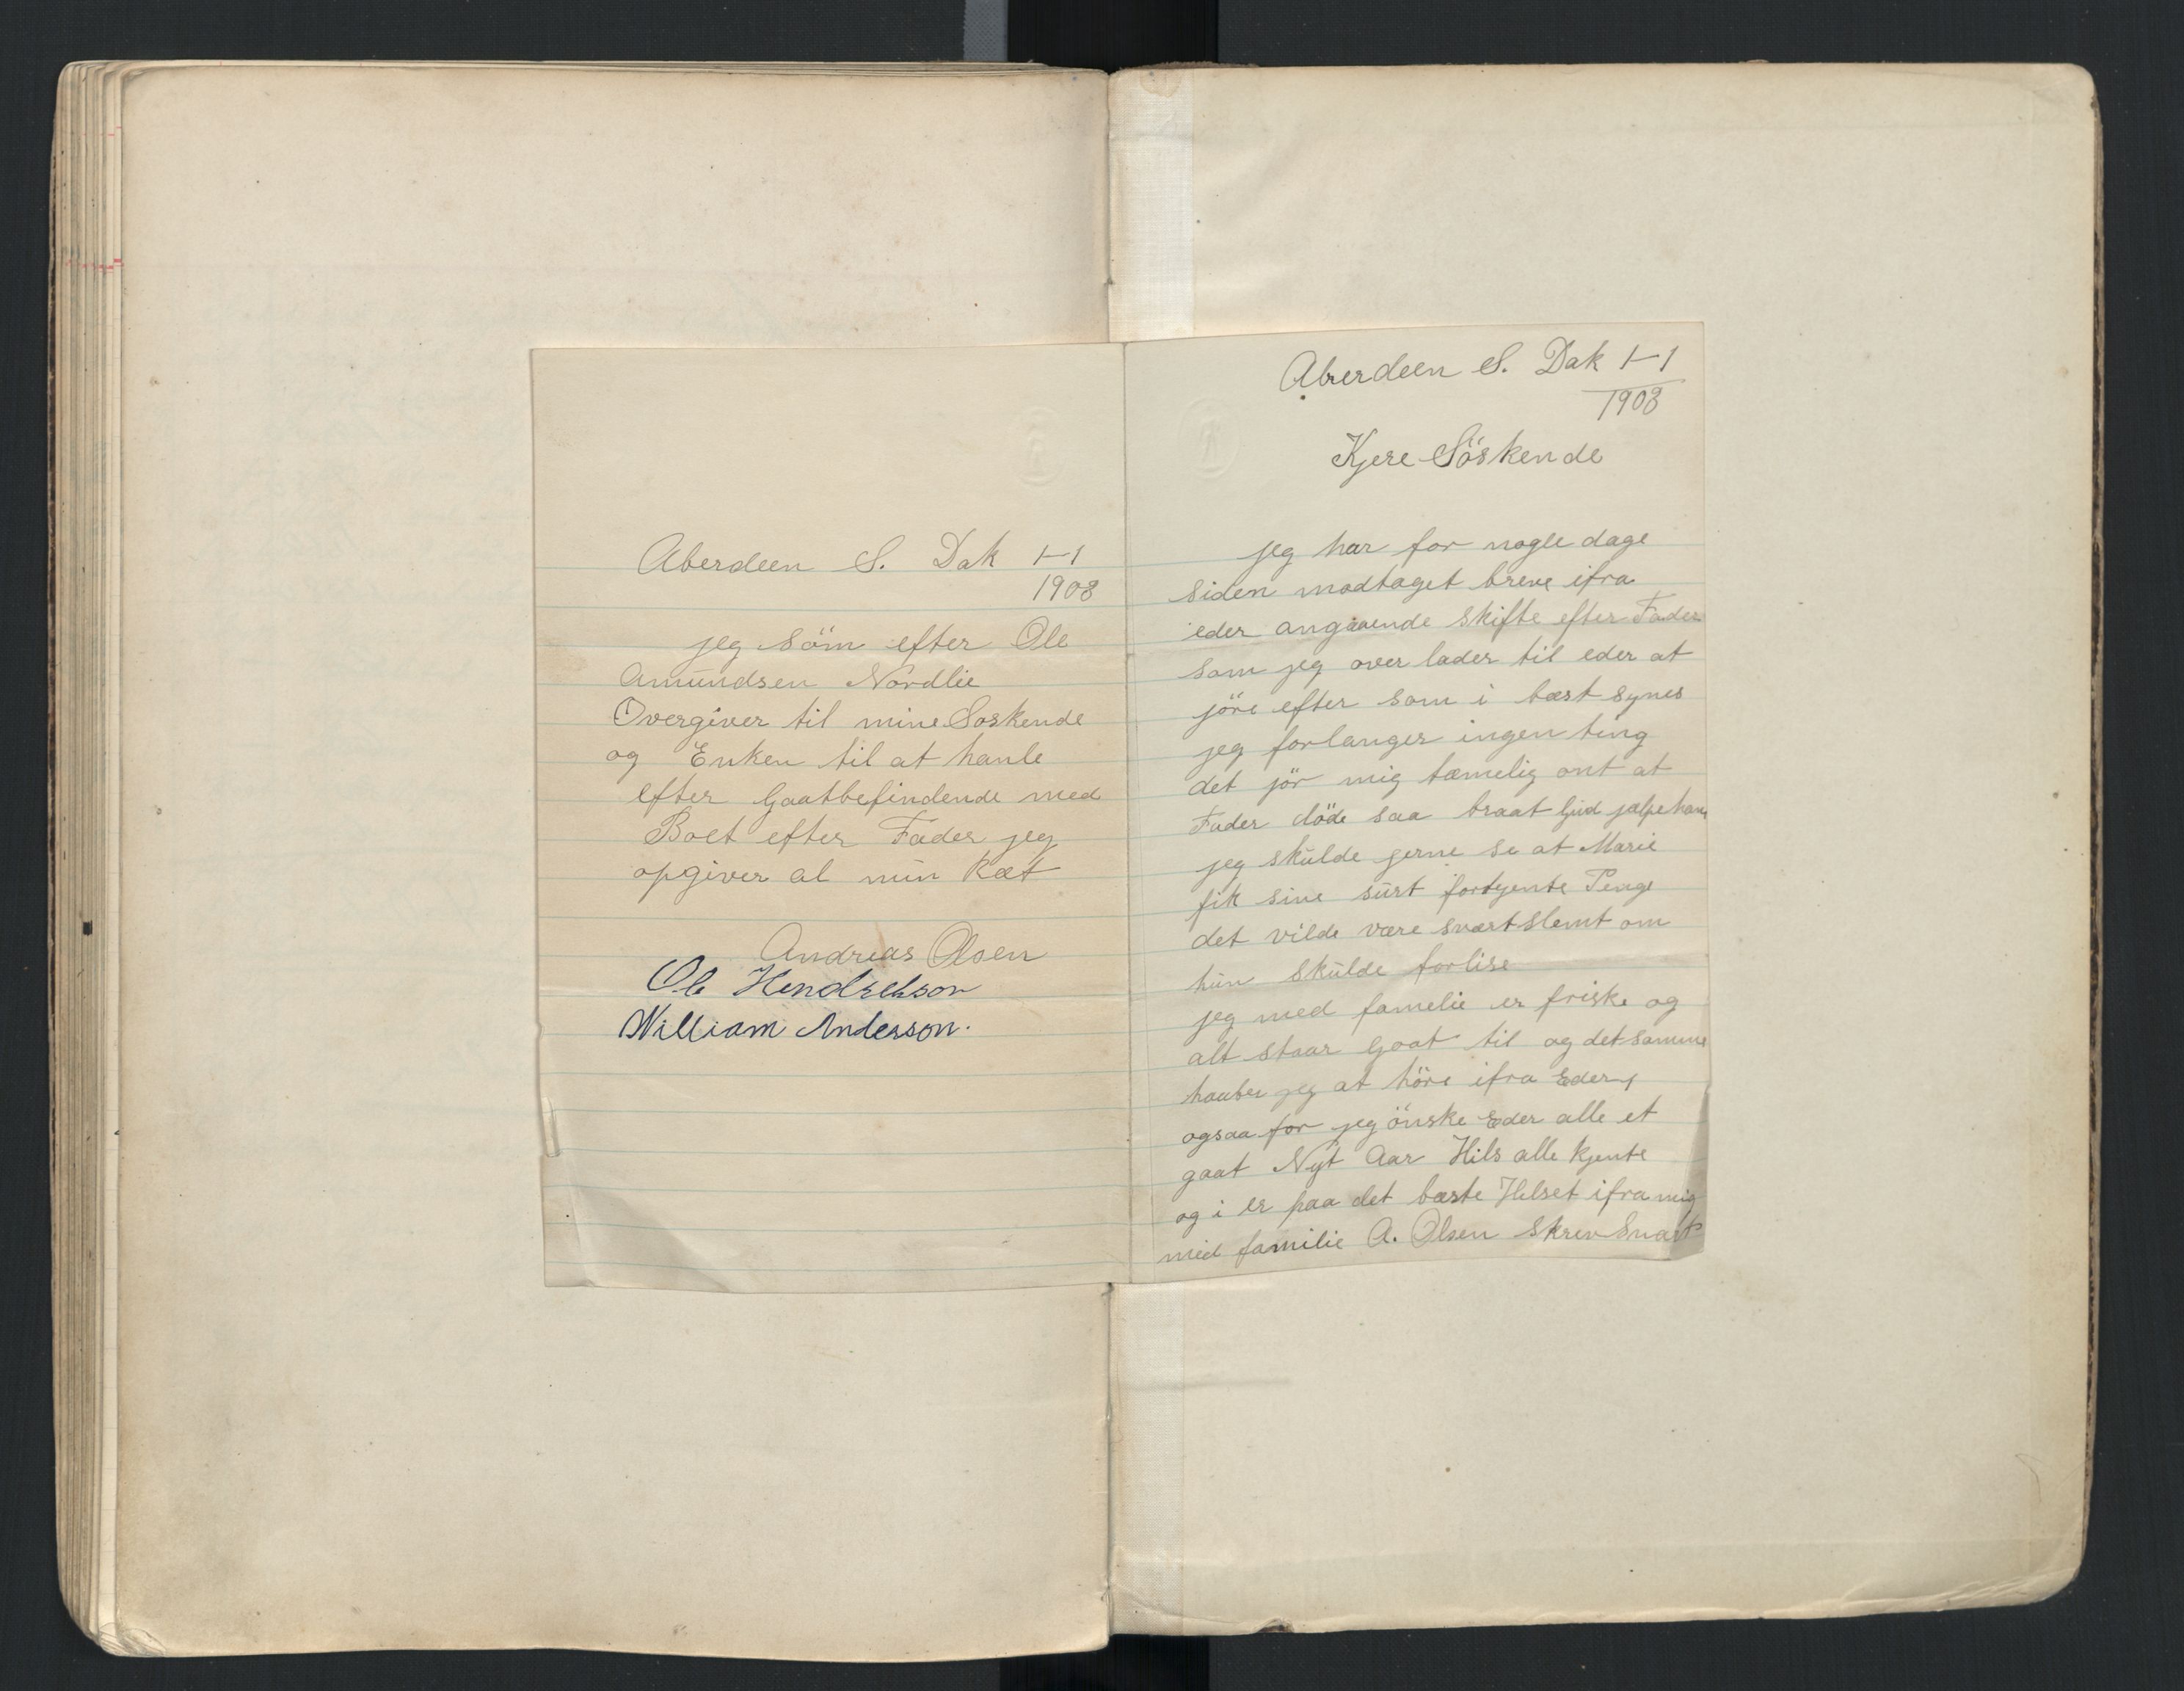 Aberdeen S. Dak 1-1
1908
jeg söm efter Ole
Amundsen Nordlie
Overgiver til mine Soskende
og Enken til at hanle
efter Gaatbefindende med
Boet efter Fader jeg
opgiver al min Ræt
Andreas Olsen
Ole Hendrekson
William Anderson.
Aberdeen S. Dak 1-1
1908
Kjere Söskende
jeg har for nogle dage
siden modtaget breve ifra
eder angaaende Skifte efter Fader
som jeg over lader til eder at
jöre efter som i bæst synes
jeg forlanger ingen ting
det jör mig tæmelig ont at
Fader döde saa braat Gud jalpe ham
jeg skulde gerne se at Marie
fik sine surt fortyente Penge
det vilde være svært slemt om
hun skulde forlise
jeg med famelie er friske og
alt staar Goat til og det samme
haaber jeg at höre ifra Eder
ogsaa for jeg önske Eder alle et
gaat Nyt Aar Hils alle kjente
og i er paa det bæste Helset ifra mig
med familie A. Olsen Skrev Snart